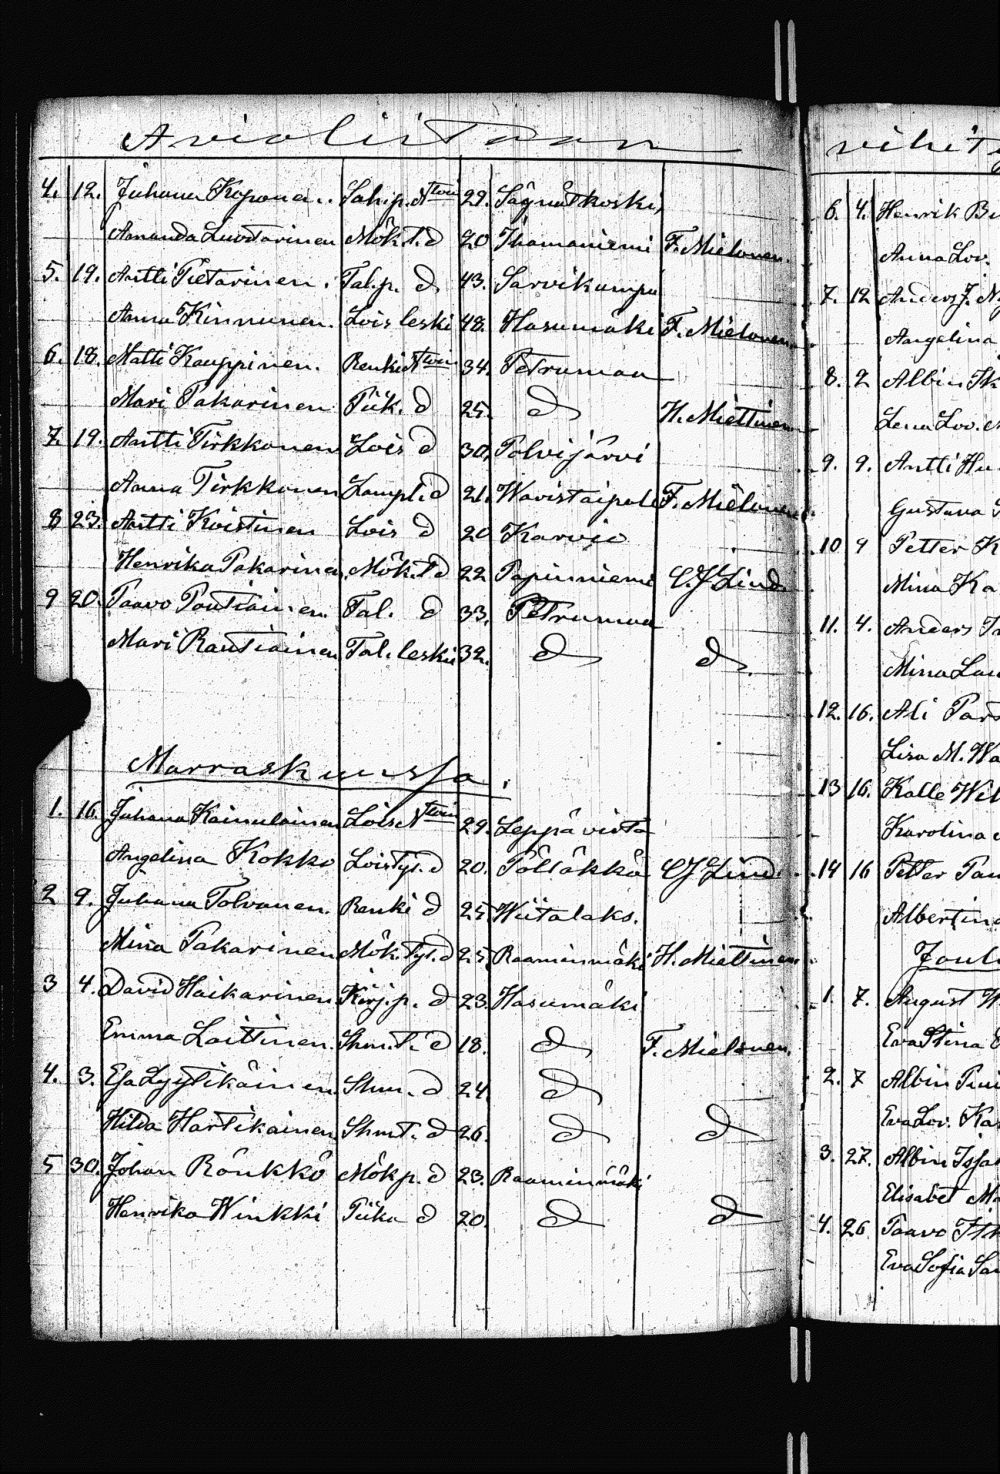 Avioliittoon
4. 12. Juhana Koponen. Sahip. N:twin 29. Sägnätkoski,
Amanda Luostarinen Mök.t. d 20 Ihamaniemi F. Mielonen.
5. 19. Antti Pietarinen. Tal.p. d 43. Sarvikumpu
Anna Kinnunen. Lois leski 48. Hasumäki F. Mielonen
6. 18. Matti Kauppinen. Renki N:twin 34. Petrumaa
Mari Pakarinen Piik. d 25. d H. Miettinen
7. 19. Antti Tirkkonen Lois d 30. Polvijärvi
Anna Tirkkonen Lampt. d 21. Wavistaipale F. Mielonen
8 23. Antti Koistinen Lois d 20 Karvio
Henrika Pakarinen. Mök.t. d 22 Papinniemi C J Lind.
9 20. Paavo Poutiainen Tal. d 33. Petrumaa
Mari Rautiainen Tal. leski 32. d d.
Marraskuussa.
1. 16. Juhana Kainulainen Lois N:twin 29. Leppävirta
Angelina Kokko Loistyt. d 20. Pölläkkä C J Lind.
2 9. Juhana Tolvanen. Renki d 25 Wiitalaks.
Mina Pakarinen Mök.tyt. d 25. Raaminmäki H. Miettinen
3 4. David Haikarinen Kirj.p. d 23. Hasumäki
Emma Laitinen. Ihm.t. d 18. d F. Mielonen.
4. 3. Esa Lyytikäinen Ihm. d 24. d
Hilda Hartikainen Ihmt. d 26. d d
5 30. Johan Rönkkö Mök p. d 23. Raaminmäki
Henrika Winkki Piika d 20. d d
vihit
6. 4. Henrik
Anna Lov.
7. 12 Anders J.
Angelina
8. 2 Albin
Lena Lov.
9. 9. Antti
Gustava
10 9 Petter
Mina
11. 4. Anders
Mina
12. 16. Ali
Lisa M.
13 16. Kalle
Karolina
14 16 Petter
Albertina
Joulu
1. 7. August
Eva Stina
2. 7 Albin
Eva Lov.
3. 27. Albin
Elisabet
4. 26 Paavo
Eva Sofia